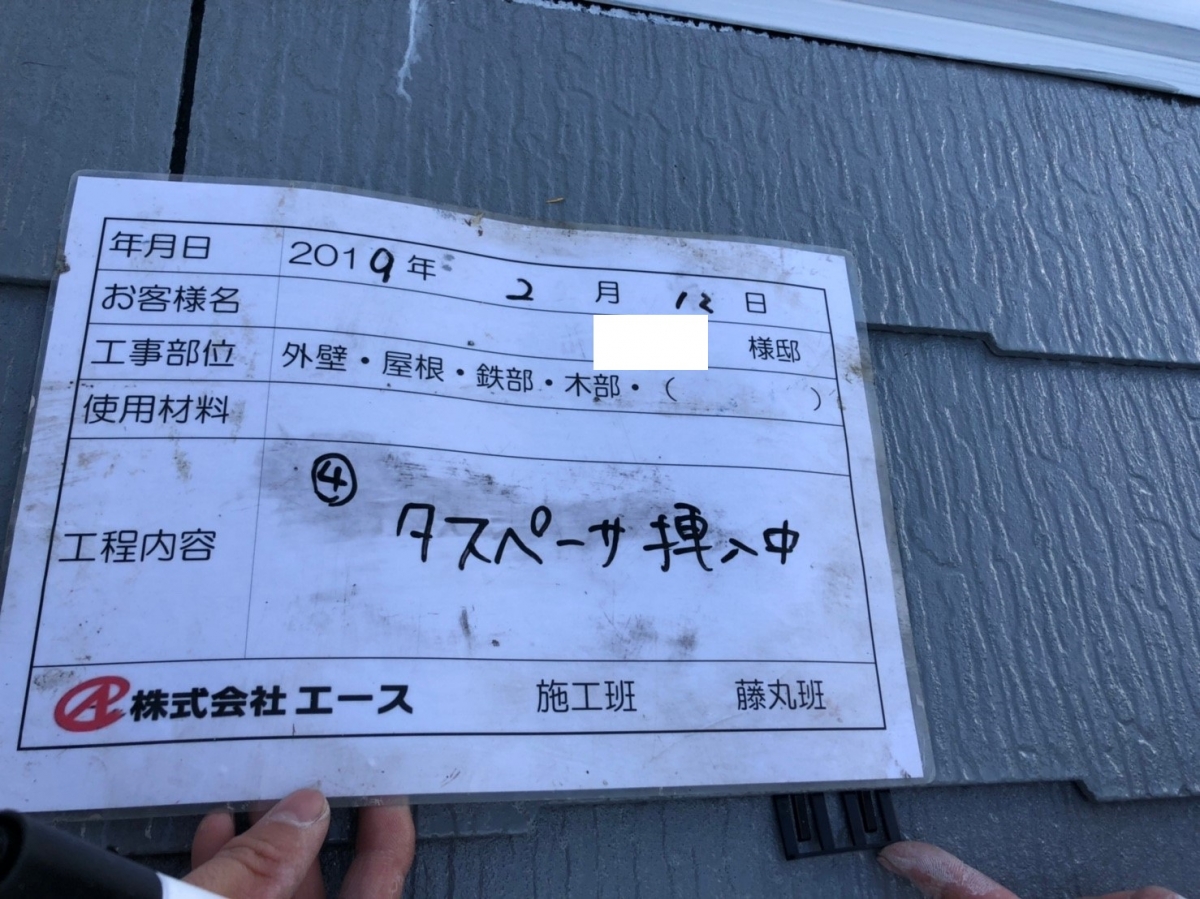 年月日 2019年 2 月 12 日
お客様名 様邸
工事部位 外壁・屋根・鉄部・木部・（ ）
使用材料
工程内容 ④ タスペーサ挿入中
株式会社エース 施工班 藤丸班